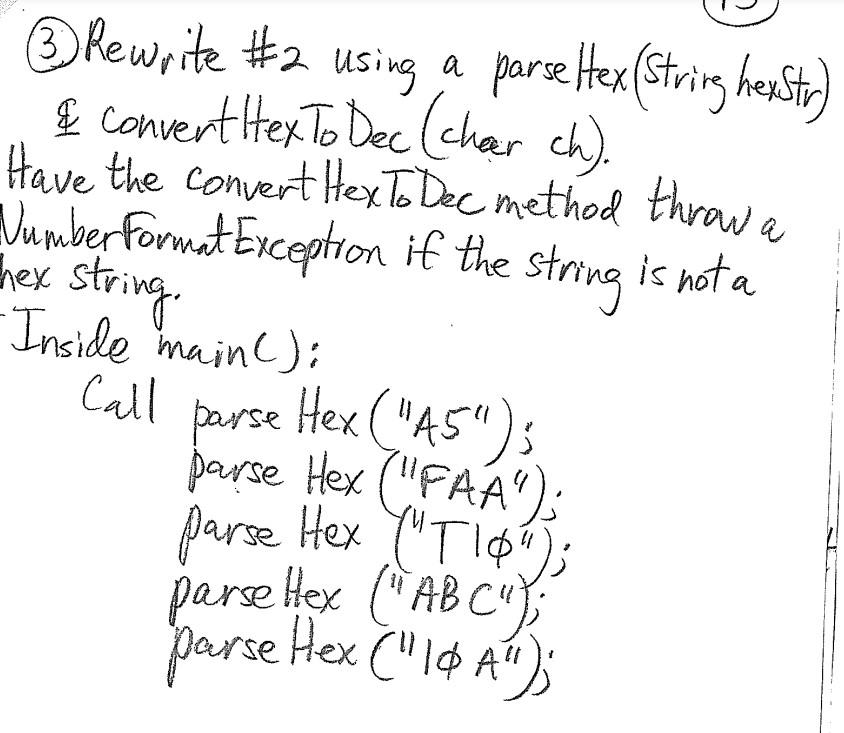 ③ Rewrite #2 using a parseHex(String hexStr)
& convertHexToDec(char ch).
Have the convertHexToDec method throw a
NumberFormatException if the string is not a
hex string.
Inside main():
Call parseHex("A5");
parseHex("FAA");
parseHex("T1φ");
parseHex("ABC");
parseHex("1φA");